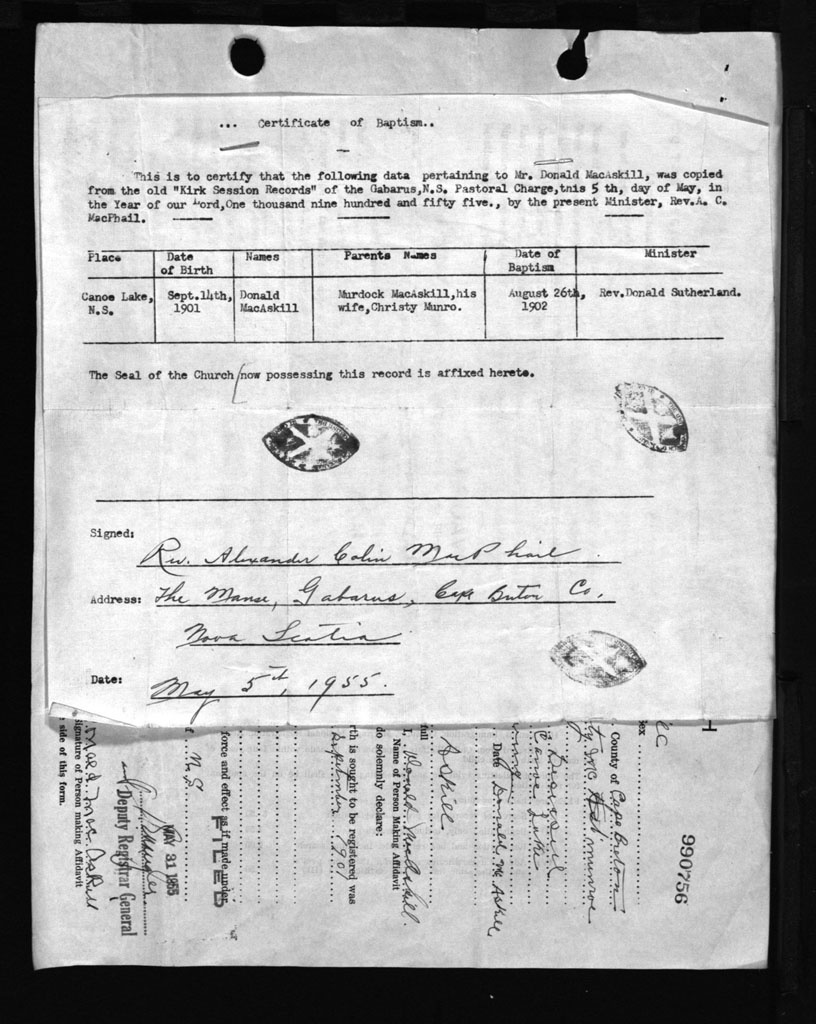 ... Certificate of Baptism..
This is to certify that the following data pertaining to Mr. Donald MacAskill, was copied
from the old "Kirk Session Records" of the Gabarus,N.S. Pastoral Charge,this 5 th, day of May, in
the Year of our Lord,One thousand nine hundred and fifty five., by the present Minister, Rev.A. C.
MacPhail.
Place Date of Birth Names Parents Names Date of Baptism Minister
Canoe Lake, N.S. Sept.14th, 1901 Donald MacAskill Murdock MacAskill,his wife,Christy Munro. August 26th, 1902 Rev.Donald Sutherland.
The Seal of the Church now possessing this record is affixed hereto.
Signed:
Rev. Alexander Colin MacPhail.
Address: The Manse, Gabarus, Cape Breton Co.
Nova Scotia
Date: May 5th, 1955.
990756
H
sex
County of Cape Breton
Canoe Lake
Date Donald Mc Askill
Askill
full
I, Donald MacAskill.
Name of Person Making Affidavit
do solemnly declare:
rth is sought to be registered was
September 1901
force and effect as if made under
FILED
N.S.
MAY 31 1955
Deputy Registrar General
Mac Askill
Signature of Person making Affidavit
side of this form.